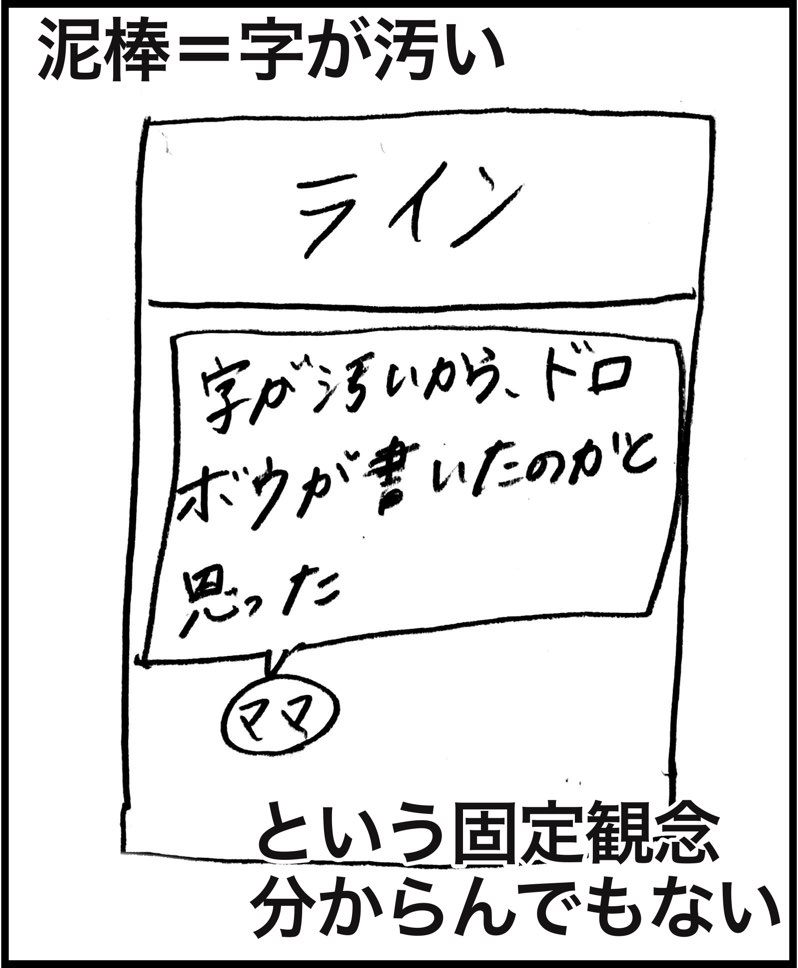 泥棒＝字が汚い
ライン
字が汚いから、ドロ
ボウが書いたのかと
思った
ママ
という固定観念
分からんでもない